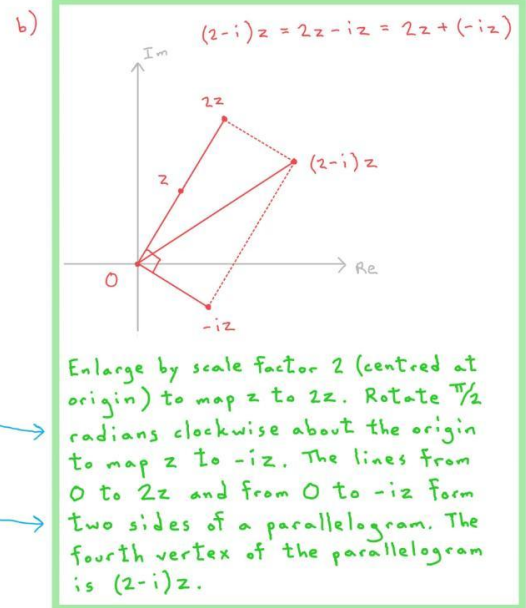 b)
(2-i)z = 2z - iz = 2z + (-iz)
Im
2z
z
(2-i)z
Re
0
-iz
Enlarge by scale factor 2 (centred at
origin) to map z to 2z. Rotate π/2
radians clockwise about the origin
to map z to -iz. The lines from
0 to 2z and from 0 to -iz form
two sides of a parallelogram. The
fourth vertex of the parallelogram
is (2-i)z.